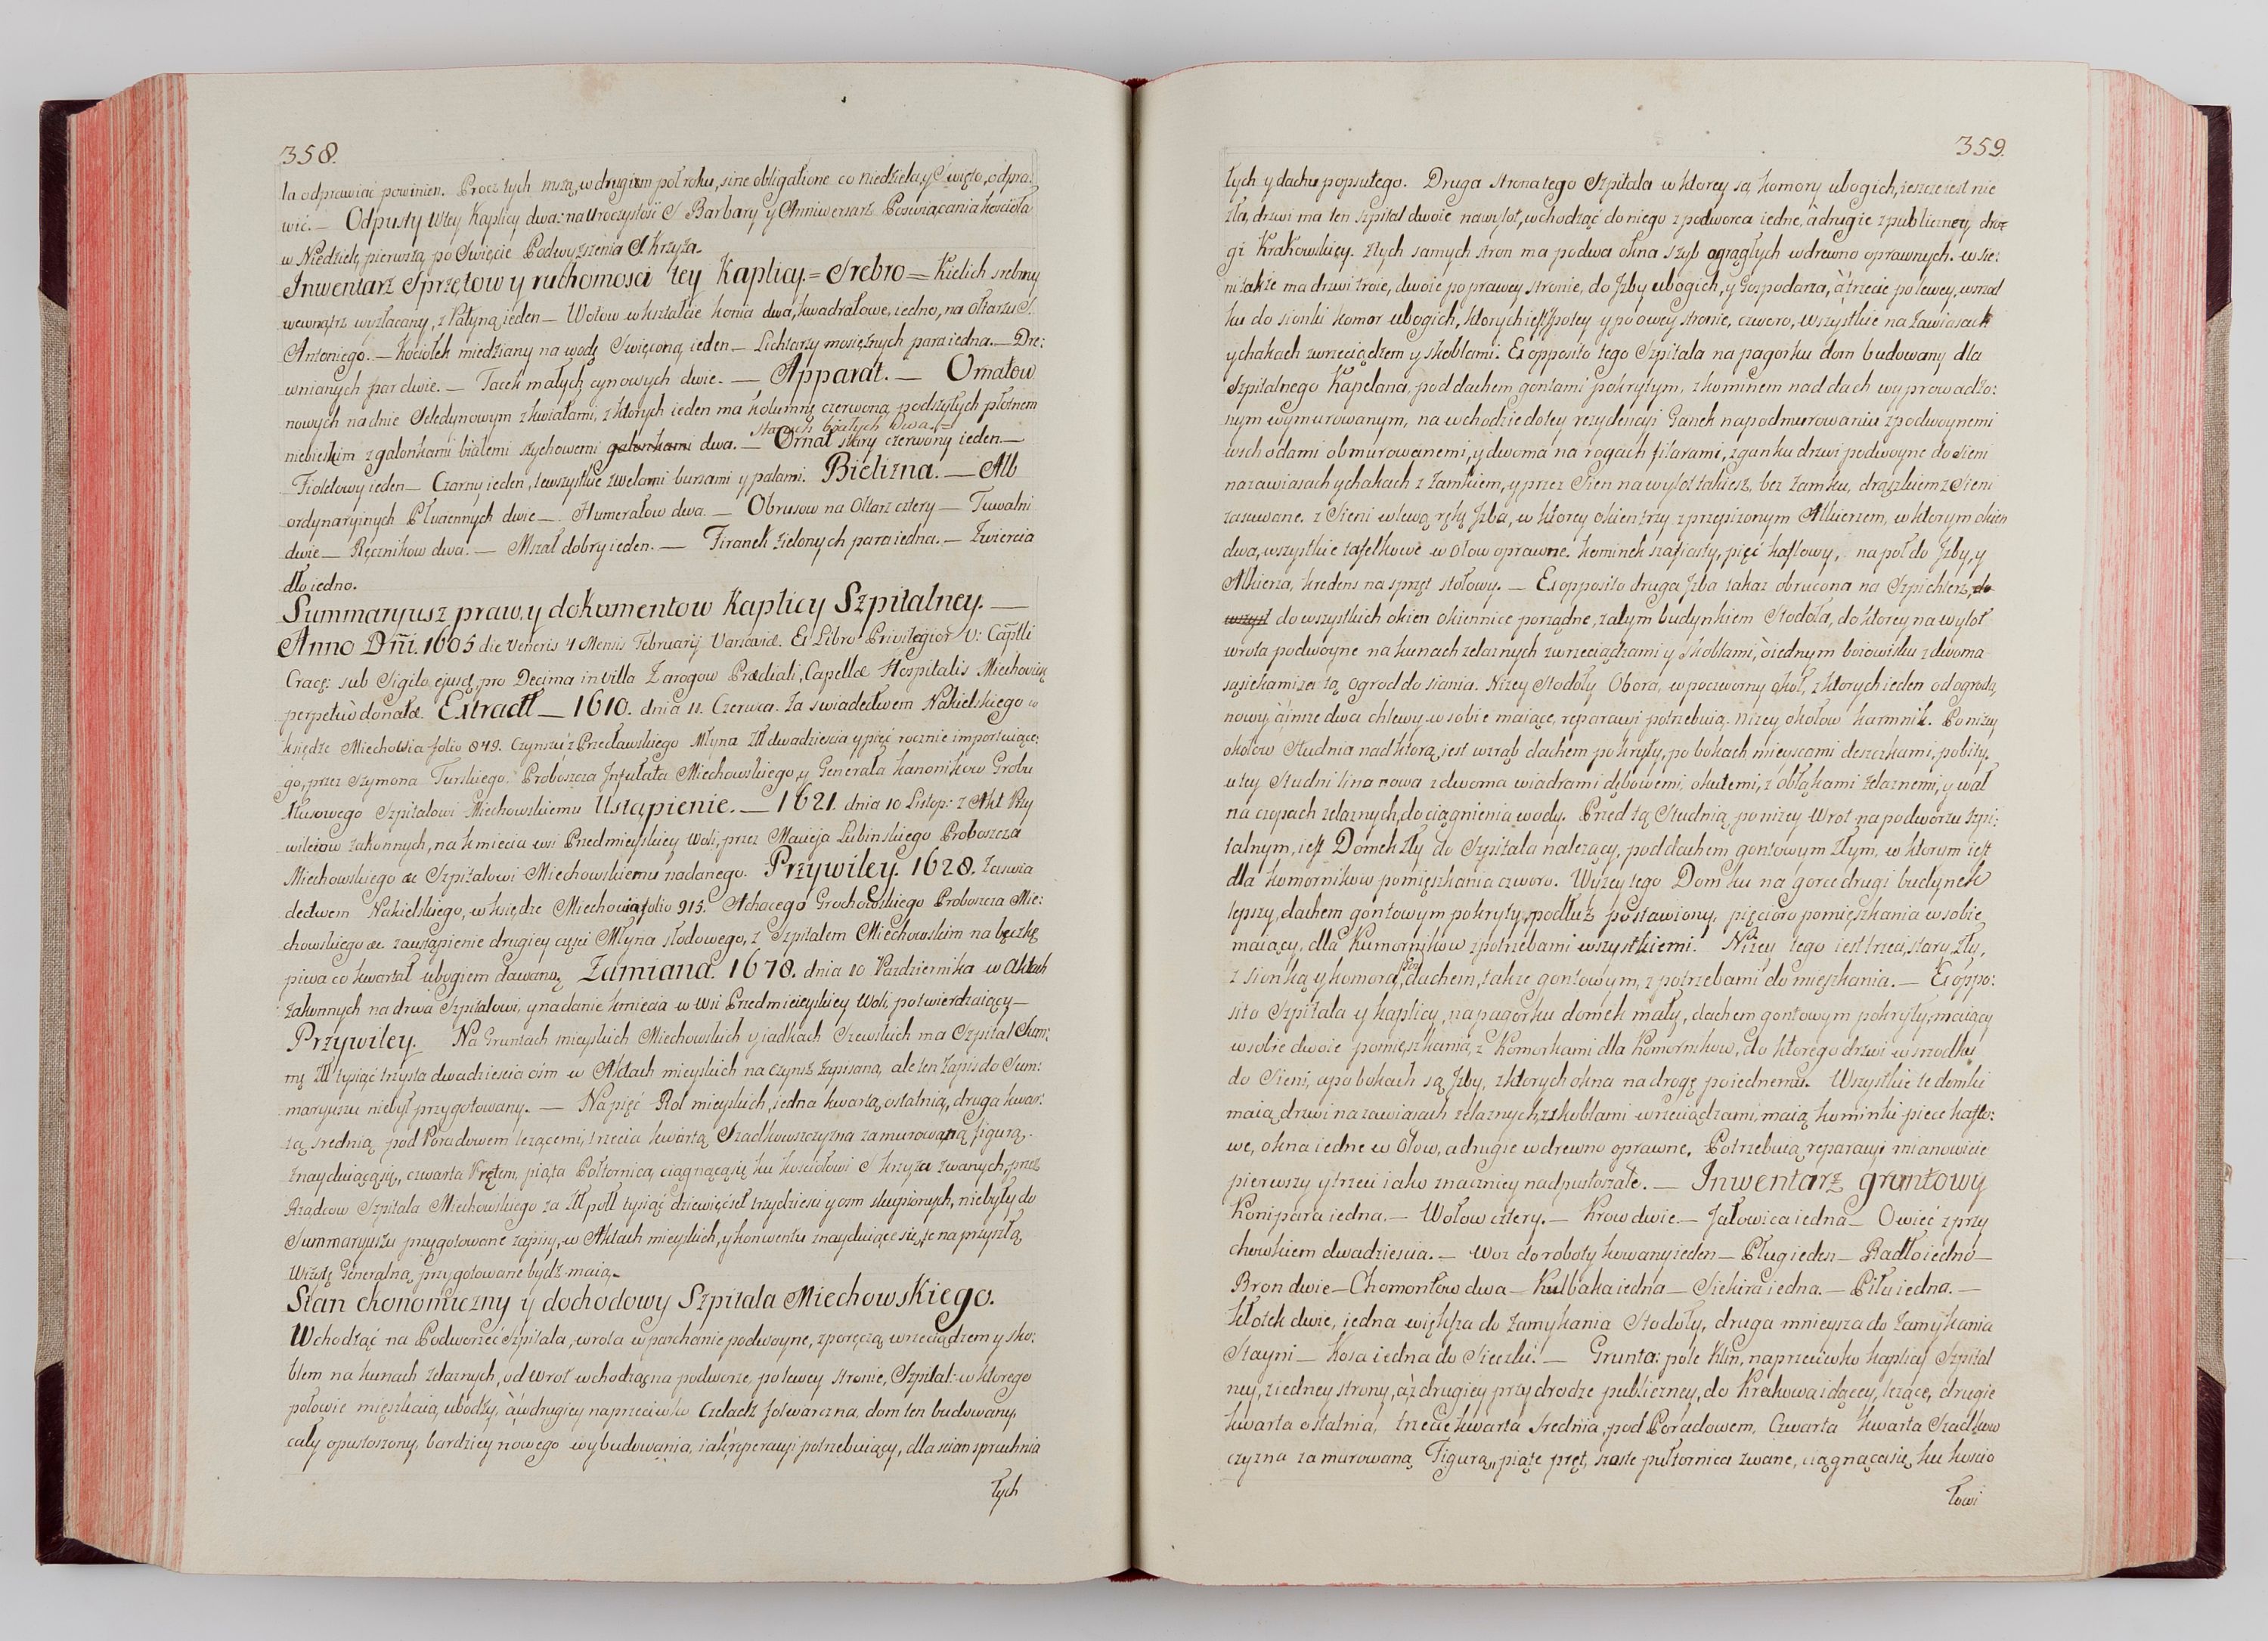 358.
la odprawiać powinien. Procz tych mszą, w drugim poł roku, sine obligatione co niedziela, y Swięto, odpra:
wić. — Odpusty w tey Kaplicy dwa: na Uroczystość S Barbary y Anniwersarz Poswiącania kościoła
w Niedzielę pierwszą po Swięcie Podwyższenia S. Krzyża.
Inwentarz Sprzętow y ruchomosci tey Kaplicy. = Srebro = Kielich srebrny
wewnątrz wyzłacany, z Patyną ieden — Wotow w kształcie konia dwa, kwadratowe, iedno, na Ołtarzu S.
Antoniego. — Kociołek miedziany na wodę Swięconą ieden — Lichtarzy mosiężnych para iedna. — Dre:
wnianych par dwie. — Tacek małych cynowych dwie. — Apparat. — Ornatow
nowych na dnie Seledynowym z kwiatami, z ktorych ieden ma kolumnę czerwoną podszytych płotnem
starych białych dwa. =
niebieskim z galonkami białemi szychowemi galonkami dwa. — Ornat stary czerwony ieden —
Fioletowy ieden — Czarny ieden, te wszystkie z welami bursami y palami. Bielizna. — Alb
ordynaryinych Płuciennych dwie — Humerałow dwa. — Obrusow na Ołtarz cztery — Tuwalni
dwie — Ręcznikow dwa. — Mszał dobry ieden. — Firanek zielonych para iedna. — Zwiercia
dło iedno.
Summaryusz praw, y dokumentow Kaplicy Szpitalney. —
Anno Dñi. 1605 die Veneris 4 Mensis Februarij Varsaviæ. Ex Libro Privilegior V: Captli
Cracę: sub Sigilo ejusq, pro Decima in villa Zarogow Prædiali, Capellæ Hospitalis Miechovię
perpetuò donatæ. Extractt — 1610. dnia 11. Czerwca. Za swiadectwem Nakielskiego w
księdze Miechovia folio 849. Czynszu z Przecławskiego Młyna Złł dwadziescia y pięć rocznie importuiące:
go, przez Szymona Turskiego, Proboszcza Infułata Miechowskiego, y Generała kanonikow Grobu
Chrusowego Szpitalowi Miechowskiemu Ustąpienie. — 1621. dnia 10 Listop: z Akt Przy
wileiow zakonnych, na kmiecia wsi Przedmieyskiey Woli, przez Macieja Lubinskiego Proboszcza
Miechowskiego &c Szpitalowi Miechowskiemu nadanego. Przywiley. 1628. Zaswia
dectwem Nakielskiego, w księdze Miechovia folio 915. Achacego Grochowskiego Proboszcza Mie:
chowskiego &c. za ustąpienie drugiey części Młyna słodowego, z Szpitalem Miechowskim na beczkę
piwa co kwartał ubogiem dawaną, Zamiana. 1678. dnia 10 Pazdziernika w Aktach
zakonnych na drwa Szpitalowi, y nadanie kmiecia w Wsi Przedmieieyskiey Woli, potwierdzaiący —
Przywiley. Na Gruntach mieyskich Miechowskich y iadkach Szewskich ma Szpital Sum:
mę Złł tysiąc trzysta dwadziescia ośm w Aktach mieyskich na czynsz zapisaną, ale ten zapis do Sum:
maryuszu niebył przygotowany. — Na pięć Rol mieyskich, iedna kwarta ostatnią, druga kwar:
tą srednią pod Poradowem lezącemi, trzecia kwartą Szadkowszczyzna za murowaną figurą.
znayduiącąsię, czwarta Prętem, piąta Połtornica, ciągnącąsię ku kosciołowi S krzyza zwanych, przez
Rządcow Szpitala Miechowskiego za Złł półł tysiąc dziewięćset trzydzieści y osm skupionych, niebyły do
Summaryuszu przygotowane zapisy, w Aktach mieyskich, y konwentu znayduiące się, te na przyszłą
Wizytę Generalną, przygotowane bydź maią.
Stan ekonomiczny y dochodowy Szpitala Miechowskiego.
Wchodząc na Podworzec Szpitala, wrota w parchanie podwoyne, z poręczą wrzeciądzem y sko:
blem na kunach żelaznych, od Wrot wchodząc na podworze, po lewey stronie, Szpital: w ktorego
połowie mięszkaią ubodzy, à w drugiey naprzeciwko Czeladź folwarczna, dom ten budowany,
cały opustoszony, bardziey nowego wybudowania, iak reparacyi potrzebuiący, dla scian spruchnia
łych
359.
łych y dachu popsutego. Druga strona tego Szpitala w ktorey są komory ubogich, ieszcze iest nie
zła, drzwi ma ten szpital dwoie na wylot, wchodząc do niego z podworca iedne, à drugie z publiczney dro
gi Krakowskiey. Z tych samych stron ma po dwa okna szyb ogrągłych w drewno oprawnych. w Sie:
ni także ma drzwi troie, dwoie po prawey stronie, do Izby ubogich, y Gospodarza, à trzecie po lewey, wrzod
ku do sionki komor ubogich, ktorych iest po tey y po owey stronie, czworo, wszystkie na zawiasach
y hakach z wrzeciądzem y skoblami. Ex opposito tego Szpitala na pagorku dom budowany dla
Szpitalnego Kapelana, pod dachem gontami pokrytym, z kominem nad dach wyprowadzo:
nym wymurowanym, na wchodzie do tey rezydencyi Ganek na podmurowaniu z podwoynemi
wschodami obmurowanemi, y dwoma na rogach filarami, z ganku drzwi podwoyne do Sieni
na zawiasach y hakach z zamkiem, y przez Sien na wylot takiesz, bez zamku, drążkiem z Sieni
zasuwane. z Sieni w lewą rękę Izba, w ktorey okien trzy z przepizonym Alkierzem, w ktorym okien
dwa, wszystkie tafelkowe w ołow oprawne. kominek szafiasty, pięć kaflowy, na poł do Izby, y
Alkierza, kredens na sprzęt stołowy. — Ex opposito druga Izba takaz obrucona na Szpichlerz, do
wszyst do wszystkich okien okiennice porządne, za tym budynkiem Stodoła, do ktorey na wylot
wrota podwoyne na kunach żelaznych z wrzeciądzami y skoblami, o iednym boiowisku z dwoma
sąsiekami, za tą ogrod do siania. Nizey Stodoły Obora, w poczworny okoł, z ktorych ieden od ogrodu,
nowy, à insze dwa chlewy w sobie maiące, reparacyi potrzebuią. nizey okołow karmnik. Ponizey
okołow Studnia nad ktorą iest wrząb dachem pokryty, po bokach mieyscami deszczkami pobity,
u tey Studni lina nowa z dwoma wiadrami dębowemi, okutemi, z obłąkami zelaznemi, y wał
na czopach zelaznych, do ciągnienia wody. Przed tą Studnią ponizey Wrot na podworzu szpi:
talnym, iest Domek zły do Szpitala nalezący, pod dachem gontowym złym, w ktorym iest
dla komornikow pomięszkania czworo. Wyzey tego Domku na gorce drugi budynek
lepszy, dachem gontowym pokryty, podłuż postawiony, pięcioro pomięszkania w sobie
maiący, dla Kumornikow z potrzebami wszystkiemi. Nizey tego iest trzeci, stary, zły,
z sionką y komorą, pod dachem, takze gontowym, z potrzebami do mięszkania. — Ex oppo:
sito Szpitala y kaplicy, na pagorku domek mały, dachem gontowym pokryty, maiący
w sobie dwoie pomięszkania, z Komorkami dla Komornikow, do ktorego drzwi w srodku
do Sieni, a po bokach są Izby, z ktorych okna na drogę po iednemu. Wszystkie te domki
maią drzwi na zawiasach zelaznych, z skoblami wrzeciądzami, maią kominki piece kaflo:
we, okna iedne w ołow, a drugie w drewno oprawne. Potrzebuią reparacyi mianowicie
pierwszy y trzeci iako znaczniey nadpustoszałe. — Inwentarz gruntowy
Koni para iedna. — Wołow cztery. — Krow dwie. — Jałowica iedna — Owiec z przy
chowkiem dwadziescia. — Woz do roboty kowany ieden — Pług ieden — Radło iedno —
Bron dwie — Chomontow dwa — Kulbaka iedna — Siekira iedna. — Piła iedna. —
Kłotek dwie, iedna większa do zamykania Stodoły, druga mnieysza do zamykania
Stayni — Kosa iedna do Sieczki. — Grunta: pole Klin, naprzeciwko kaplicy Szpital
ney, z iedney strony, à z drugiey przy drodze publiczney, do Krakowa idącey, lezące, drugie
kwarta ostatnia, trzecie kwarta srednia, pod Poradowem, Czwarta kwarta Szadkow
czyzna za murowaną Figurą, piąte pręt, szoste pułtornica zwane, ciągnącasię, ku koscio
łowi